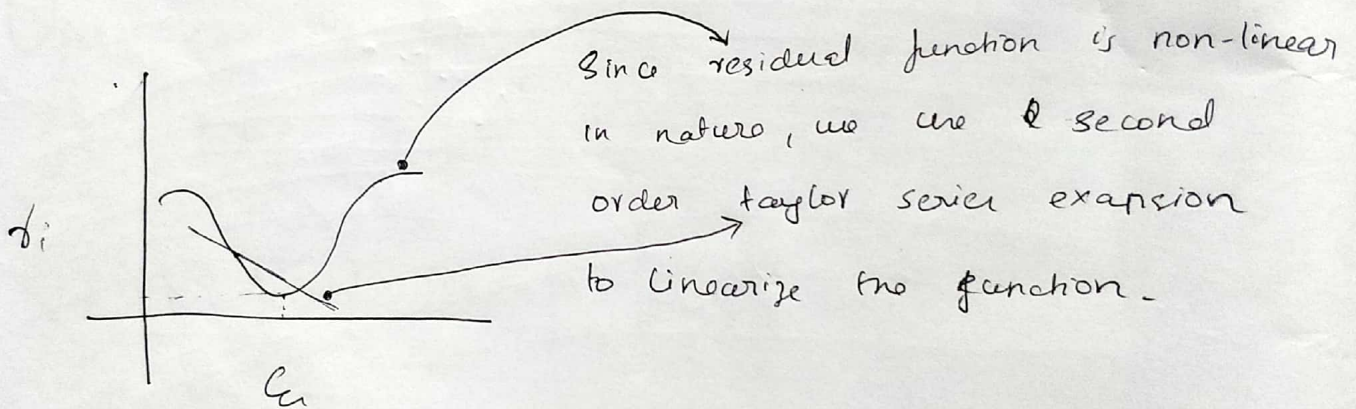 Since residual function is non-linear
in nature, we use second
order taylor series exapsion
to linearize the function.